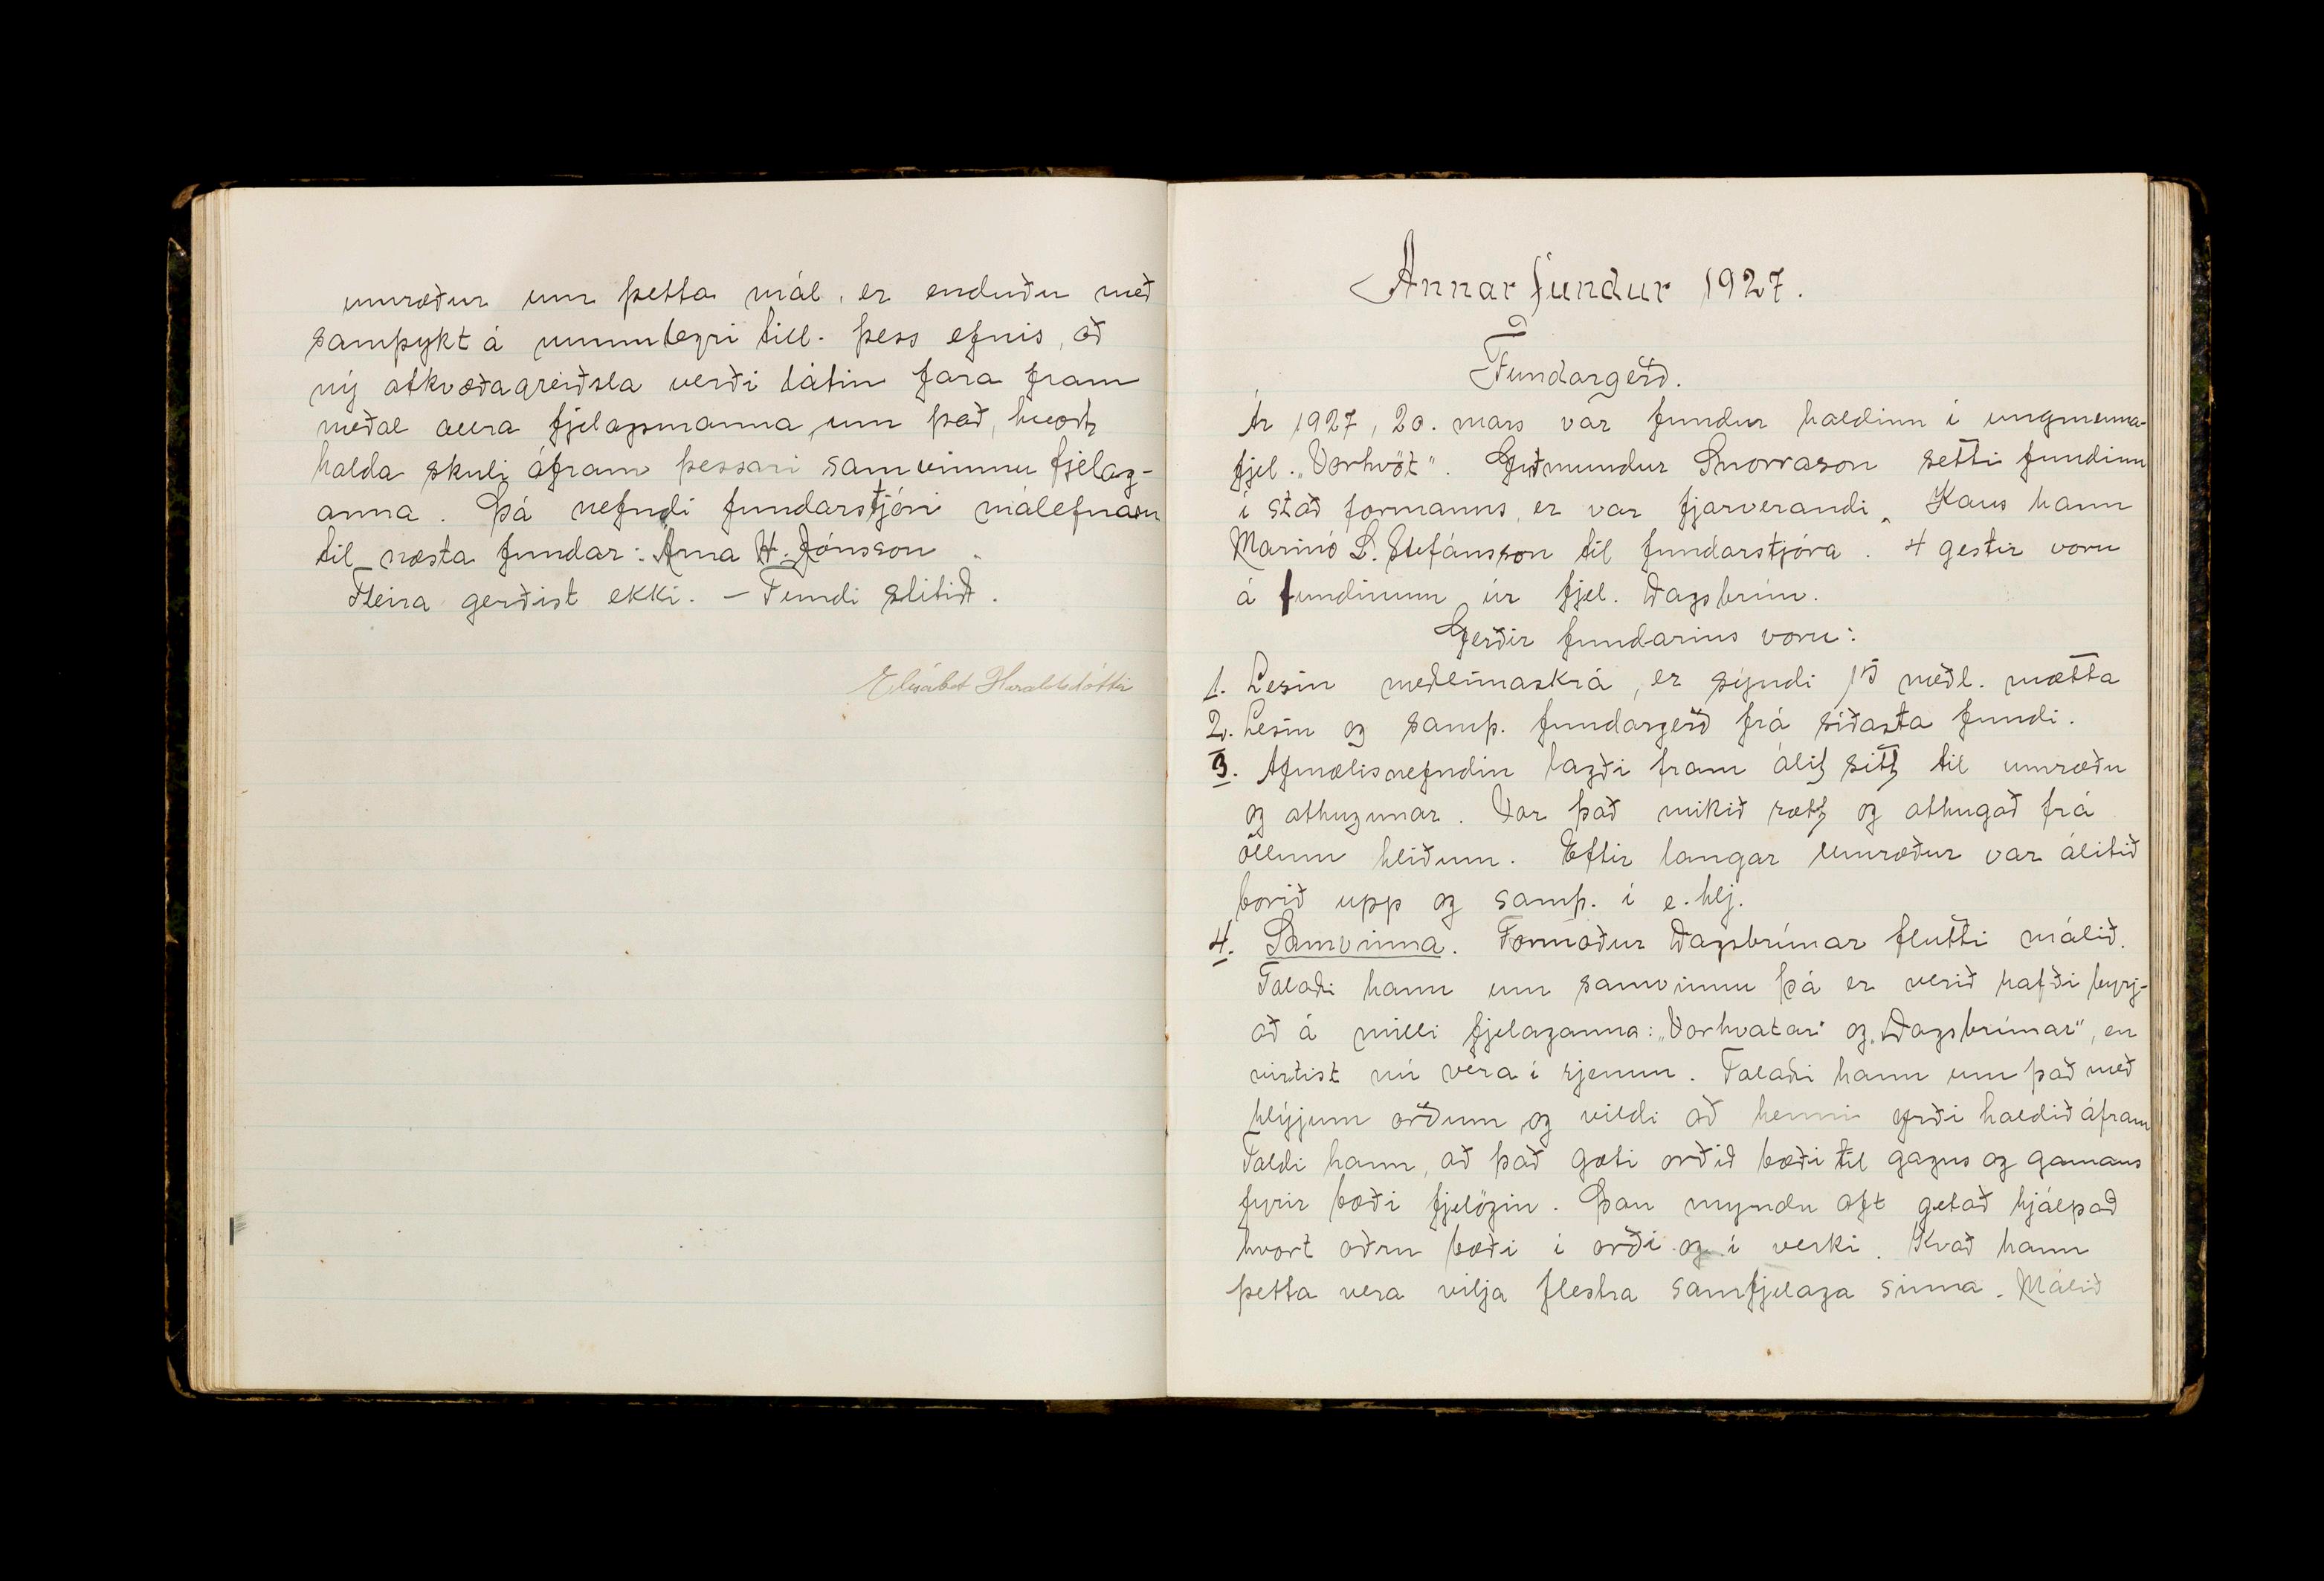 umræður um þetta mál, er enduðu með
samþykt á munnlegri till. þess efnis, að
ný atkvæðagreiðsla verði látin fara fram
meðal allra fjelagsmanna um það, hvort
halda skuli áfram þessari samvinnu fjelag-
anna. Þá nefndi fundarstjóri málefnasm
til næsta fundar: Anna H. Jónsson.
Fleira gerðist ekki. - Fundi slitið.
Elísabet Haraldsdóttir
Annar fundur 1927.
Fundargerð.
Ár 1927, 20. mars var fundur haldinn í ungmenna-
fjel. „Vorhvöt". Guðmundur Snorrason setti fundinn
í stað formanns, er var fjarverandi. Kaus hann
Marinó L. Stefánsson til fundarstjóra. 4 gestir voru
á fundinum úr fjel. Dagsbrún.
Gerðir fundarins voru:
1. Lesin meðlimaskrá, er sýndi 15 meðl. mætta
2. Lesin og samþ. fundargerð frá síðasta fundi.
3. Afmælisnefndin lagði fram álit sitt til umræðu
og athugunar. Var það mikið rætt og athugað frá
öllum hliðum. Eftir langar umræður var álitið
borið upp og samþ. í e. hlj.
4. Samvinna. Formaður Dagsbrúnar flutti málið.
Talaði hann um samvinnu þá er verið hafði byrj-
að á milli fjelaganna: „Vorhvatar" og „Dagsbrúnar", en
virtist nú vera í rjenun. Talaði hann um það með
hlýjum orðum og vildi að henni yrði haldið áfram
Taldi hann, að það gæti orðið bæði til gagns og gamans
fyrir bæði fjelögin. Þau myndu oft getað hjálpað
hvort öðru bæði í orði og í verki. Kvað hann
þetta vera vilja flestra samfjelaga sinna. Málið